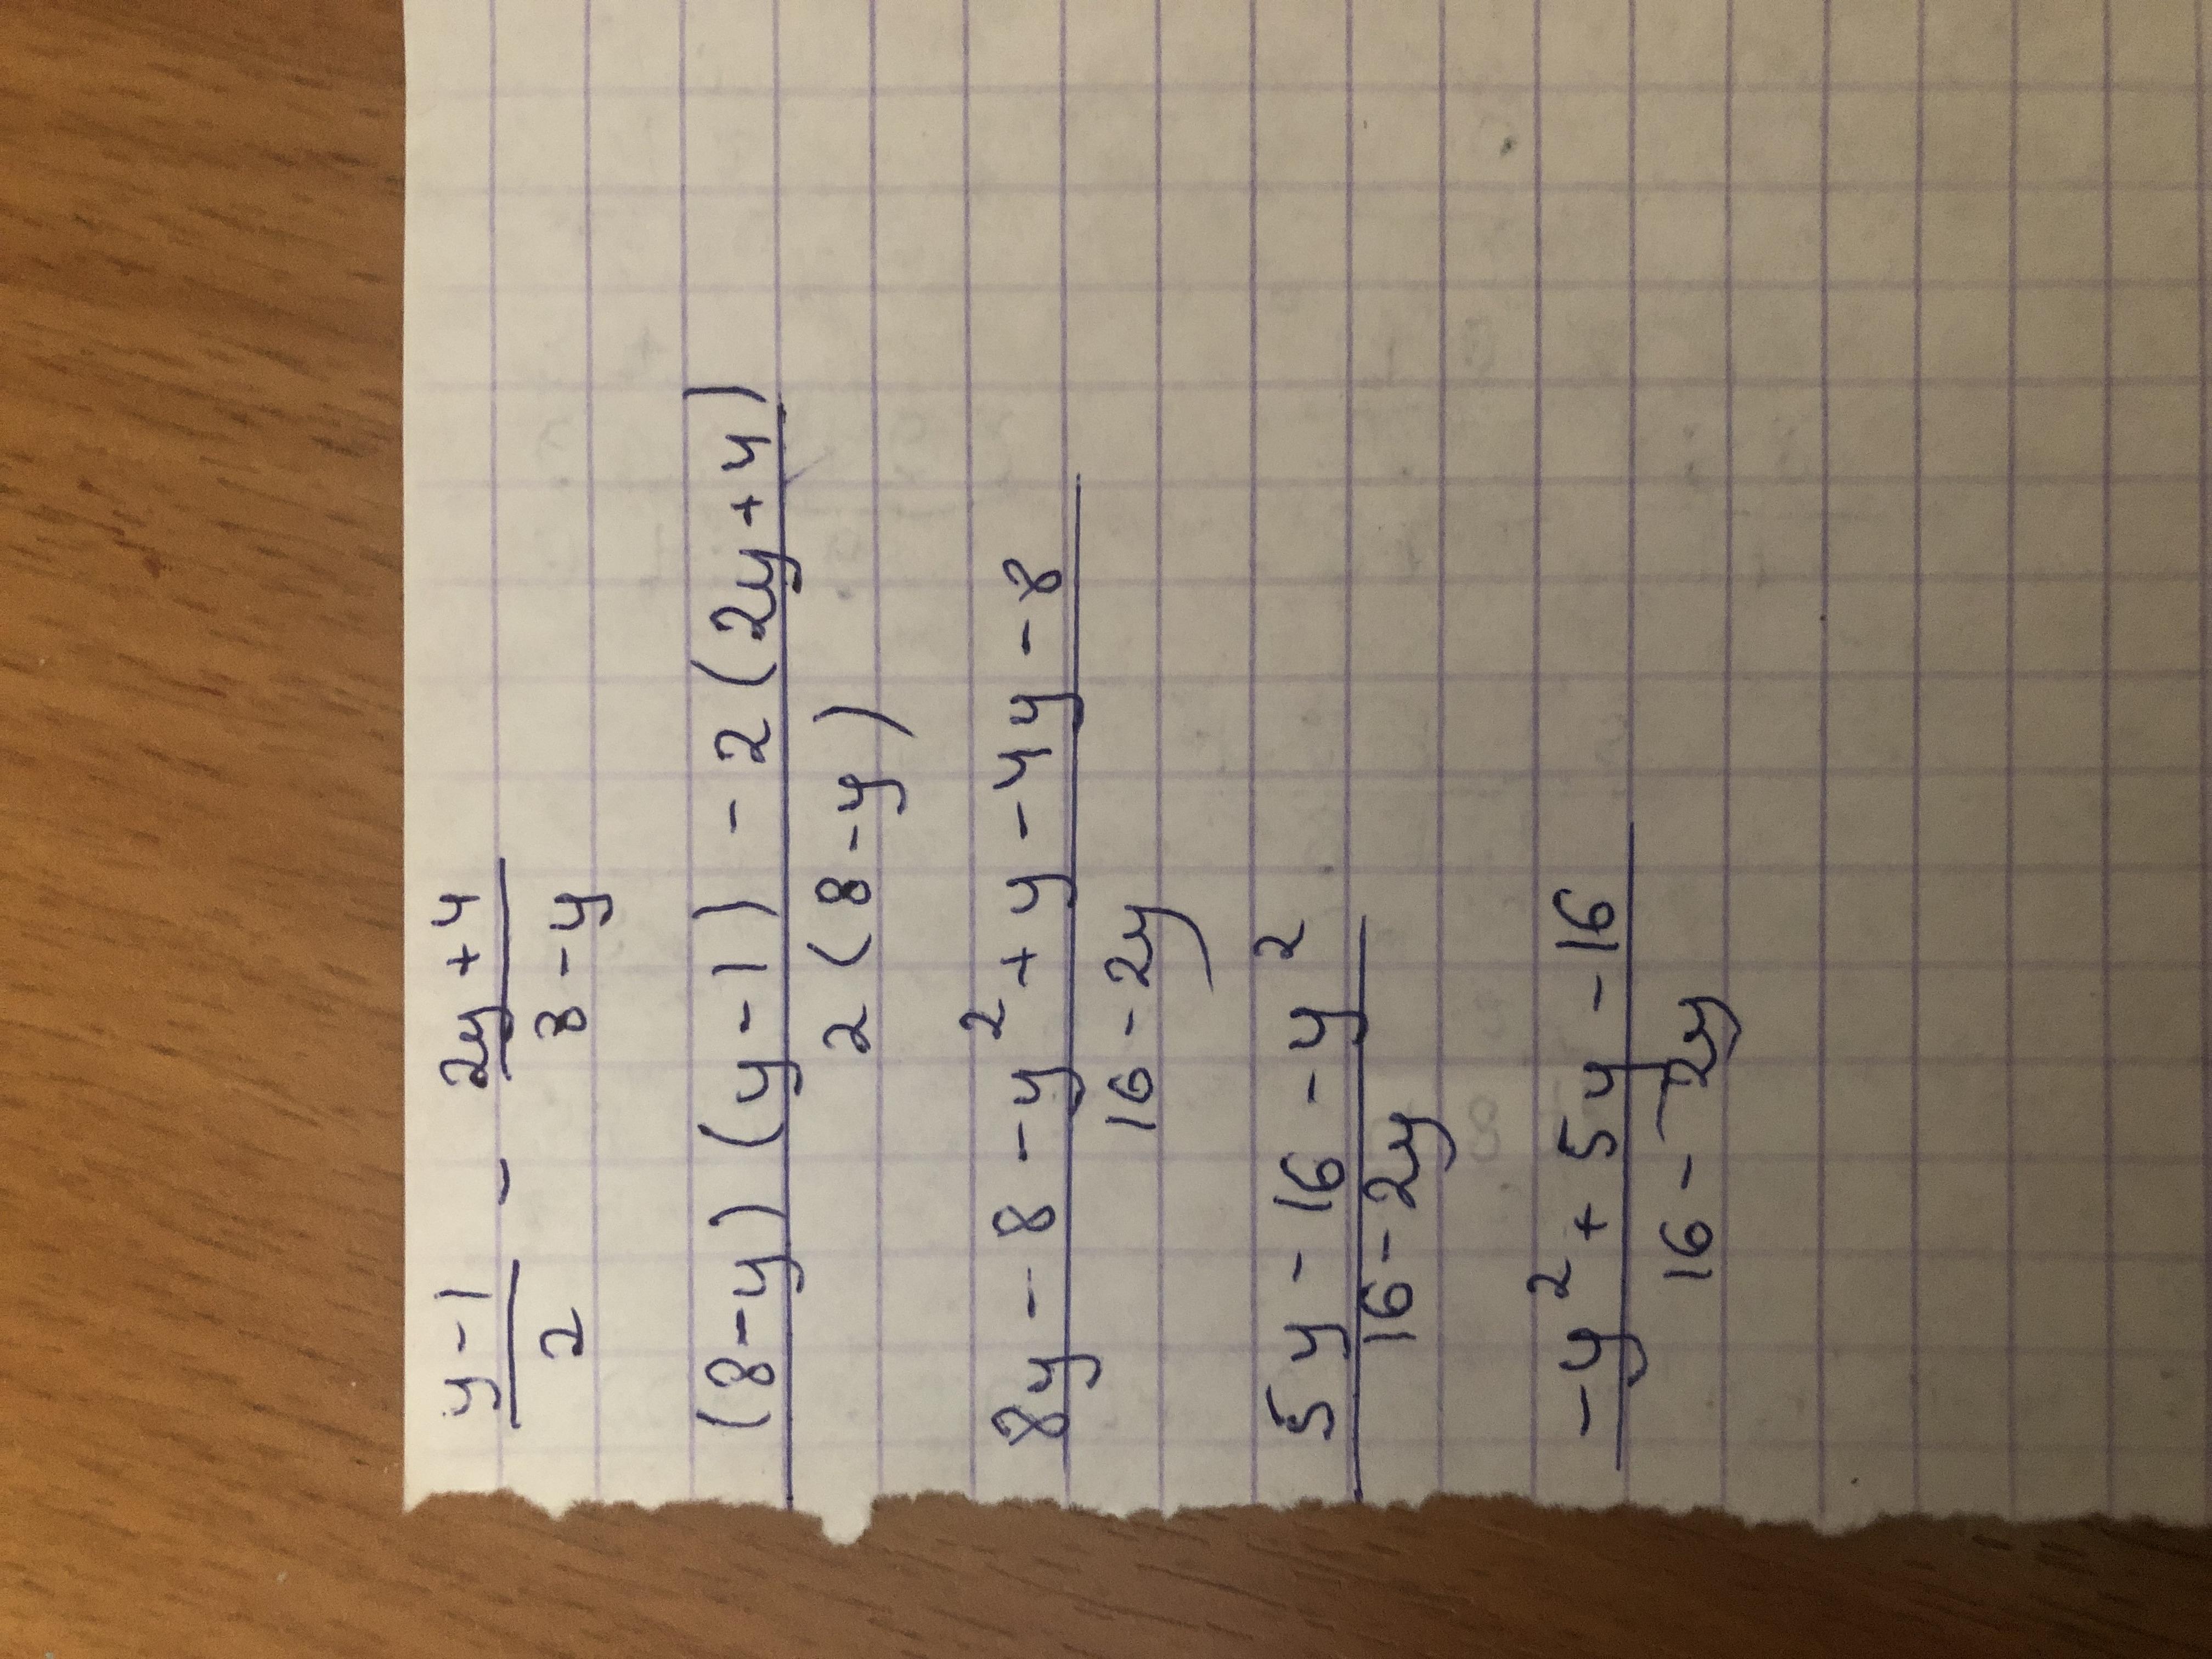 y - 1 / 2 - 2y + 4 / 8 - y
(8 - y) (y - 1) - 2 (2y + 4) / 2 (8 - y)
8y - 8 - y² + y - 4y - 8 / 16 - 2y
5y - 16 - y² / 16 - 2y
-y² + 5y - 16 / 16 - 2y